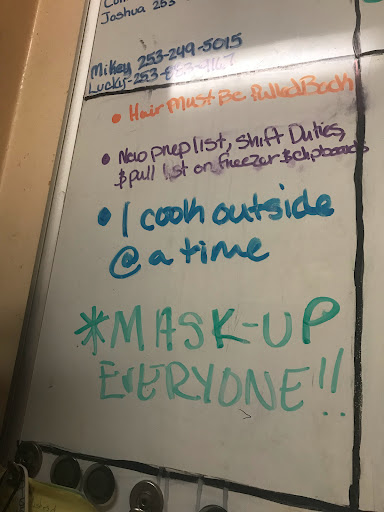 Joshua 253
Mikey 253-249-5015
Lucky-253-
• Hair Must Be Pulled Back!
• New prep list, Shift Duties,
& pull list on freezer & clipboards
• 1 cook outside
@ a time
*MASK-UP
EVERYONE!!